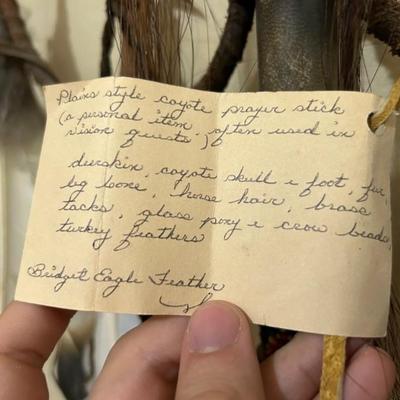 Plains style coyote prayer stick
(a personal item, often used in
vision quests.)
deerskin, coyote skull & foot, fur,
leg bone, horse hair, brass
tacks, glass pony & crow beads,
turkey feathers
Bridget Eagle Feather